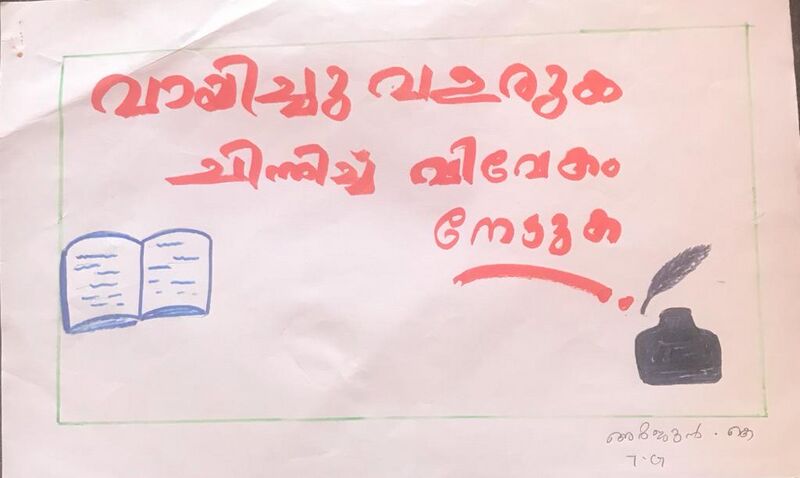 വായിച്ചു വളരുക
ചിന്തിച്ച് വിവേകം
നേടുക
അർജുൻ . കെ
7.G